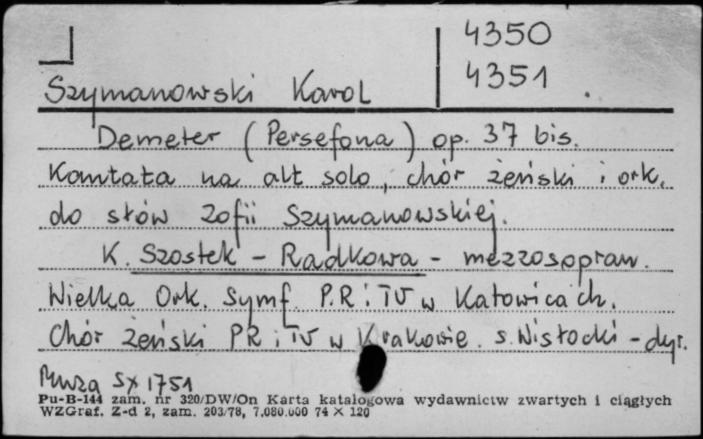 4350
4351
Szymanowski Karol
Demeter (Persefona) op. 37 bis.
Kantata na alt solo, chór żeński i ork.
do słów Zofii Szymanowskiej.
K. Szostek - Radkowa - mezzosopran.
Wielka Ork. Symf. P.R. i TV w Katowicach.
Chór żeński PR i TV w Krakowie. S. Wisłocki - dyr.
Muza SX 1751
Pu-B-144 zam. nr 320/DW/On Karta katalogowa wydawnictw zwartych i ciągłych
WZGraf. Z-d 2, zam. 203/78, 7.080.000 74 × 120